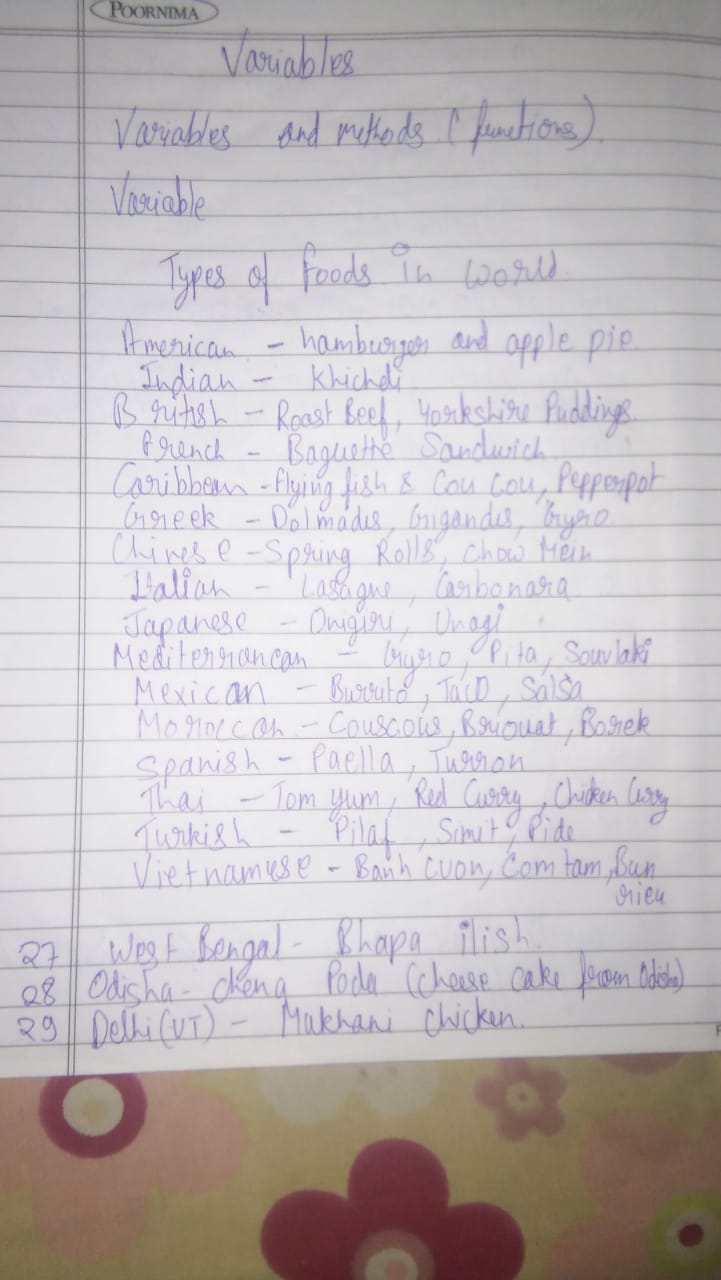 POORNIMA
Variables
Variables and methods (functions).
Variable
Types of foods in world.
American - hamburger and apple pie.
Indian - Khichdi
British - Roast Beef, Yorkshire Puddings.
French - Baguette Sandwich.
Caribbean - flying fish & Cou Cou, Pepperpot
Greek - Dolmades, Gigandes, Gyro.
Chinese - Spring Rolls, Chow Mein
Italian - Lasagne, Carbonara
Japanese - Onigiri, Unagi.
Mediterranean - Gyro, Pita, Souvlaki
Mexican - Burrito, Taco, Salsa
Moroccan - Couscous, Briouat, Borek
Spanish - Paella, Turron
Thai - Tom yum, Red Curry, Chicken Curry
Turkish - Pilaf, Simit, Pide
Vietnamese - Banh Cuon, Com tam, Bun
rieu
27 West Bengal - Bhapa ilish.
28 Odisha - Chena Poda (cheese cake from Odisha)
29 Delhi (UT) - Makhani chicken.